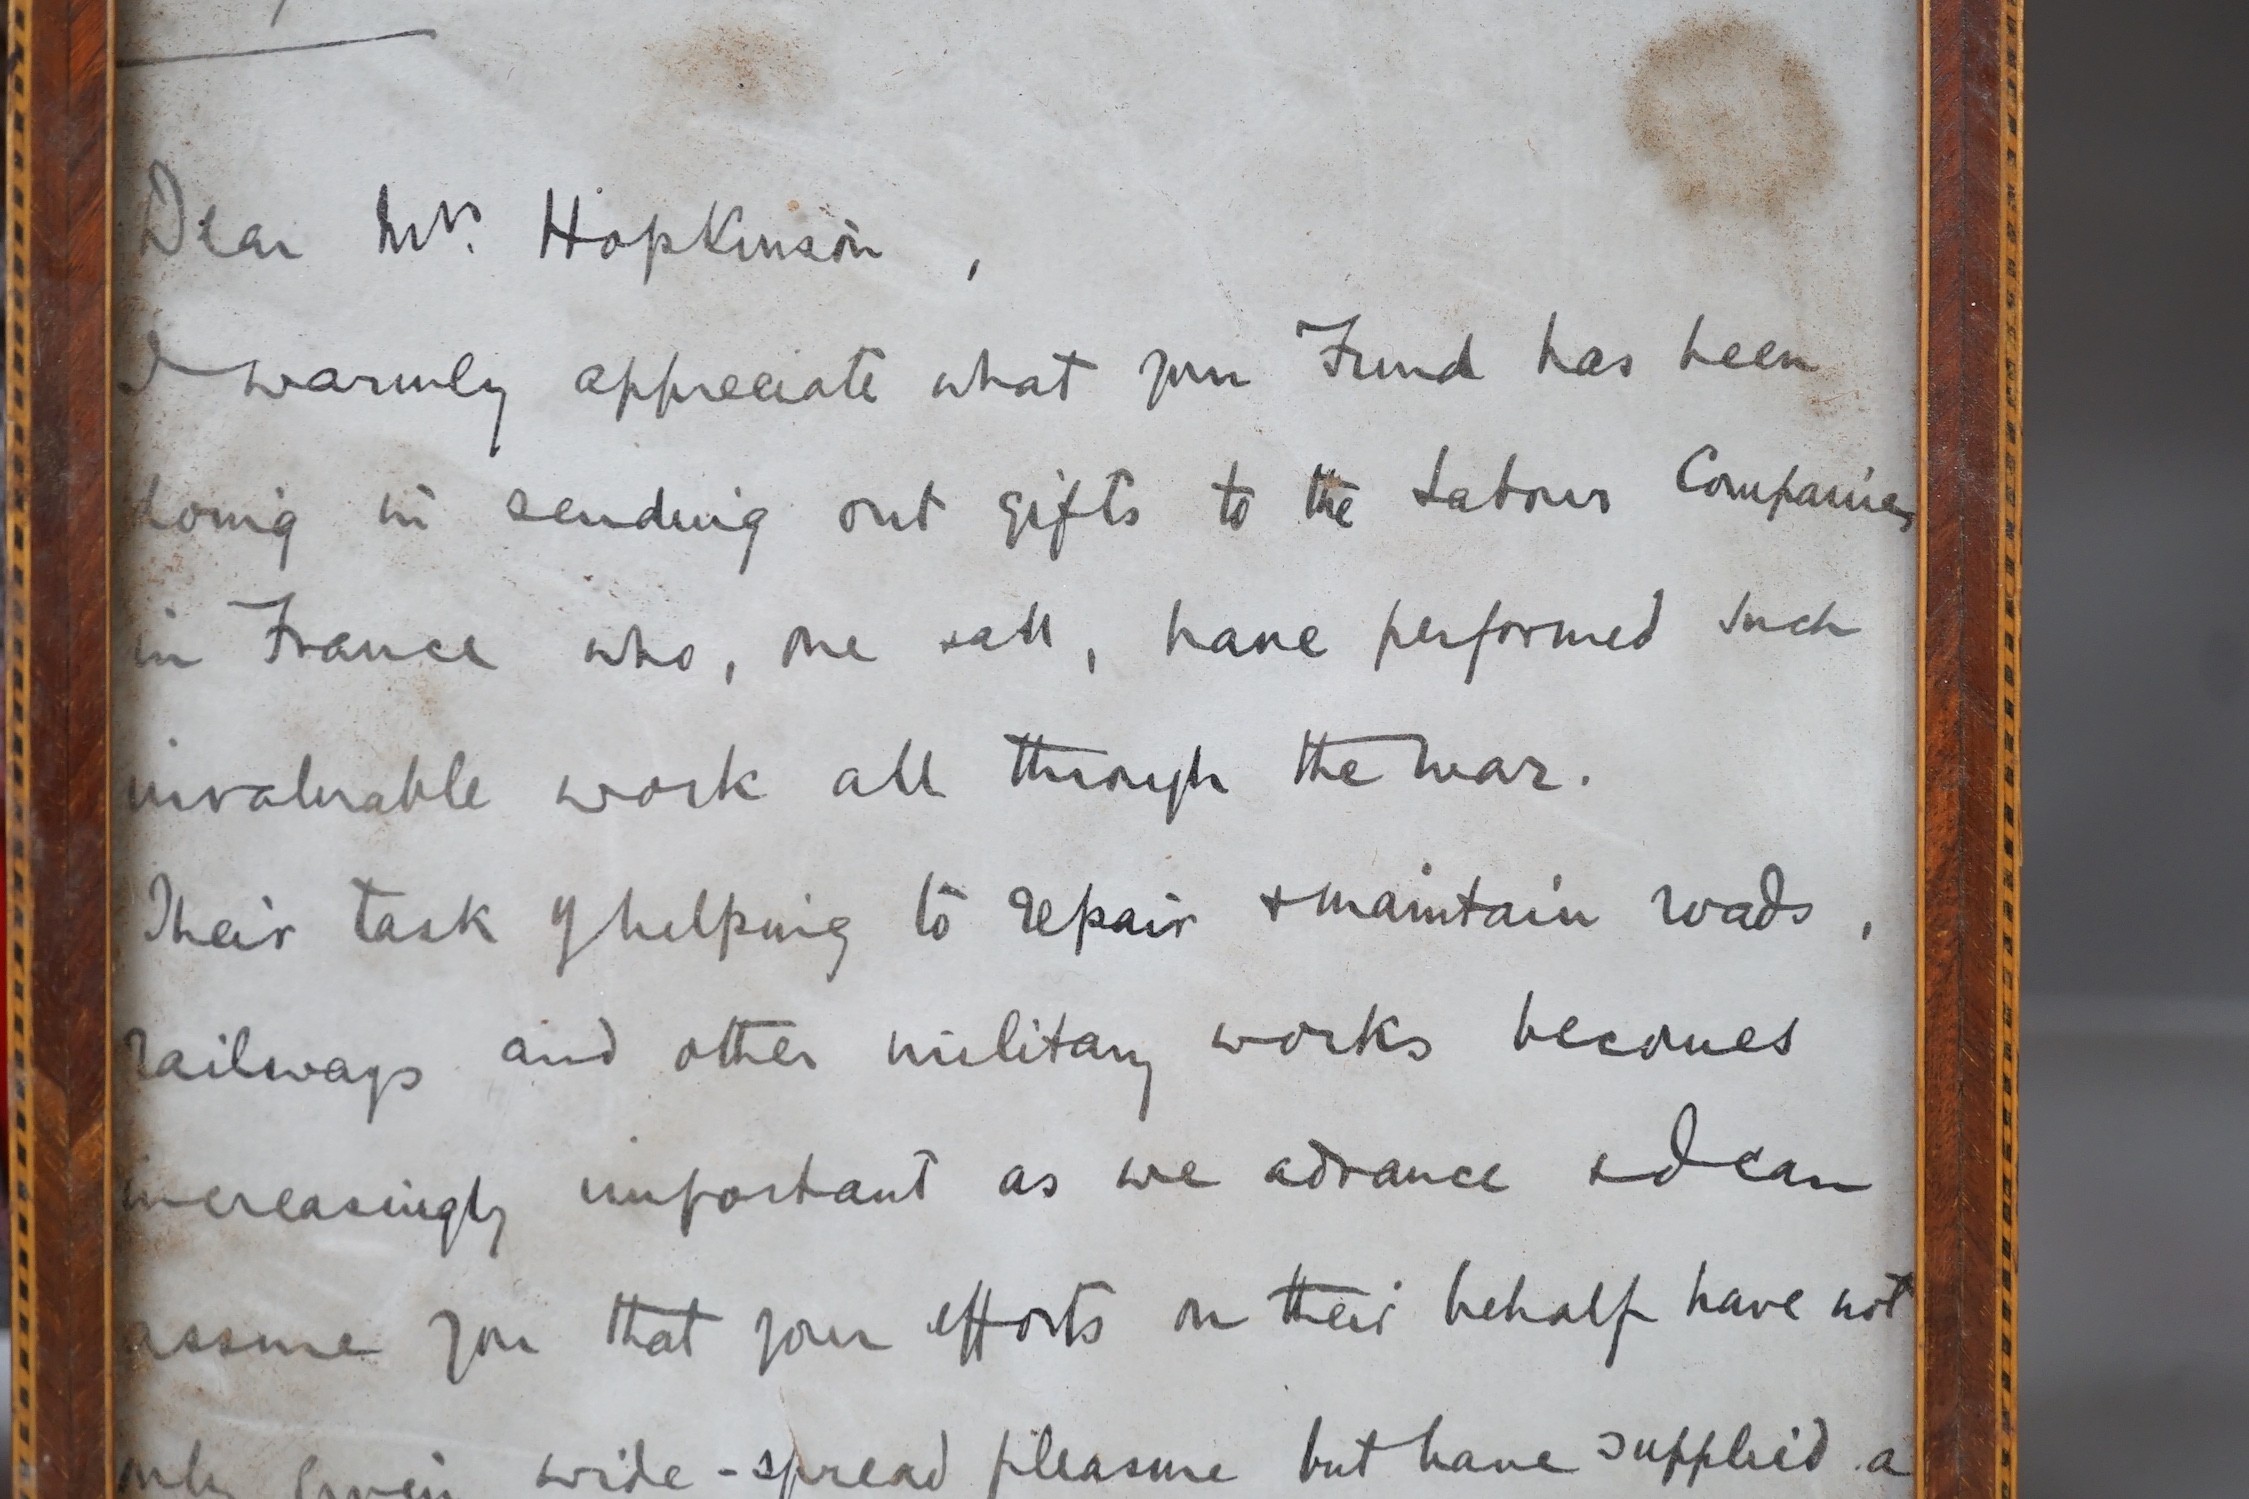 Dear Mrs. Hopkinson,
I warmly appreciate what your Fund has been
doing in sending out gifts to the Labour Companies
in France who, one & all, have performed such
invaluable work all through the war.
Their task of helping to repair & maintain roads,
railways and other military works becomes
increasingly important as we advance & I can
assure you that your efforts on their behalf have not
only given wide-spread pleasure but have supplied a